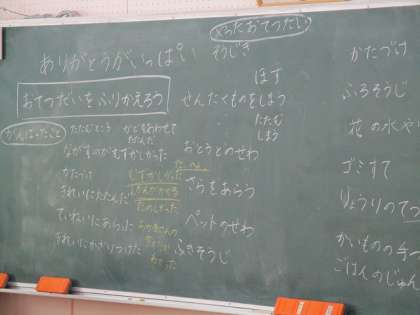 ありがとうがいっぱい
おてつだいをふりかえろう
がんばったこと
たたむところ
かどをあわせて
たたんだ
ながすのがむずかしかった
きれいにたたんだ
むずかしかった
たのしかった
ていねいにあらった
きれいにかざりつけた
おてつだい
そうじき
ほす
せんたくものをしまう
たたむ
しまう
おとうとのせわ
さらをあらう
ペットのせわ
ふきそうじ
かたづけ
ふろそうじ
花の水や
ゴミすて
りょうりのてつ
かいものの手つ
ごはんのじゅん